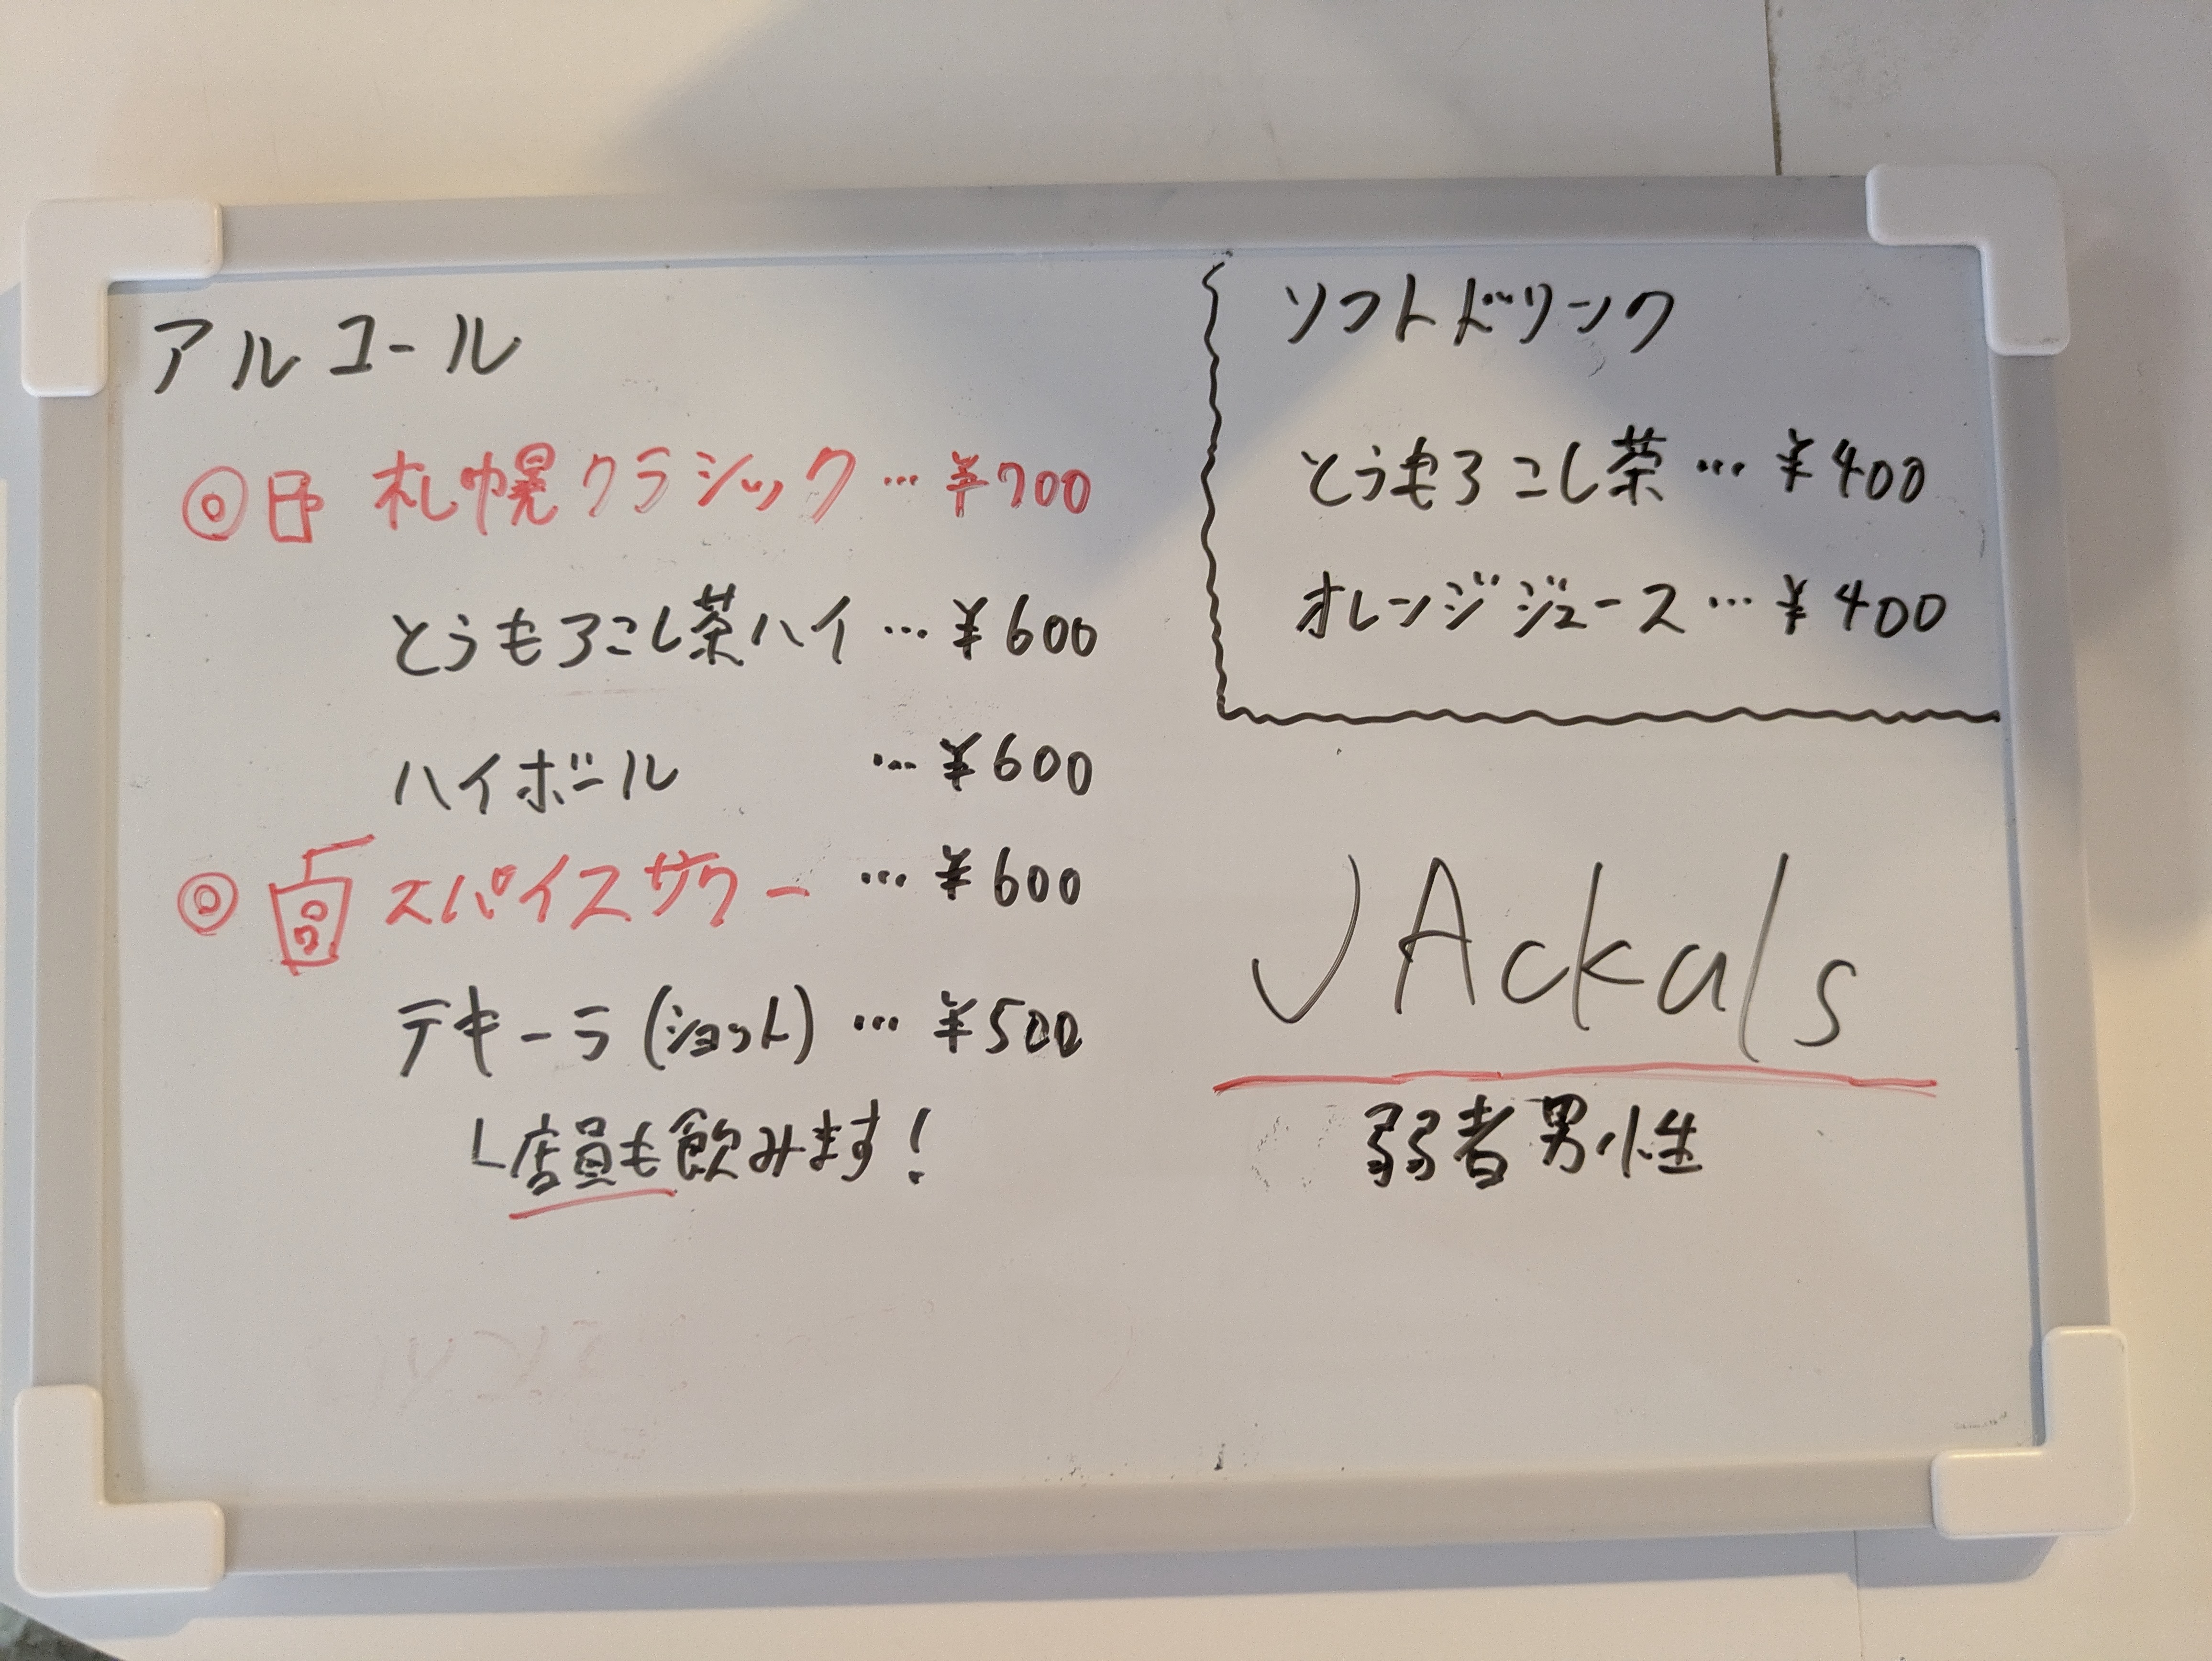 アルコール
◎ 札幌クラシック…¥700
とうもろこし茶ハイ…¥600
ハイボール …¥600
◎ スパイスサワー…¥600
テキーラ(ショット)…¥500
└店員も飲みます!
ソフトドリンク
とうもろこし茶…¥400
オレンジジュース…¥400
JAckals
弱者男性